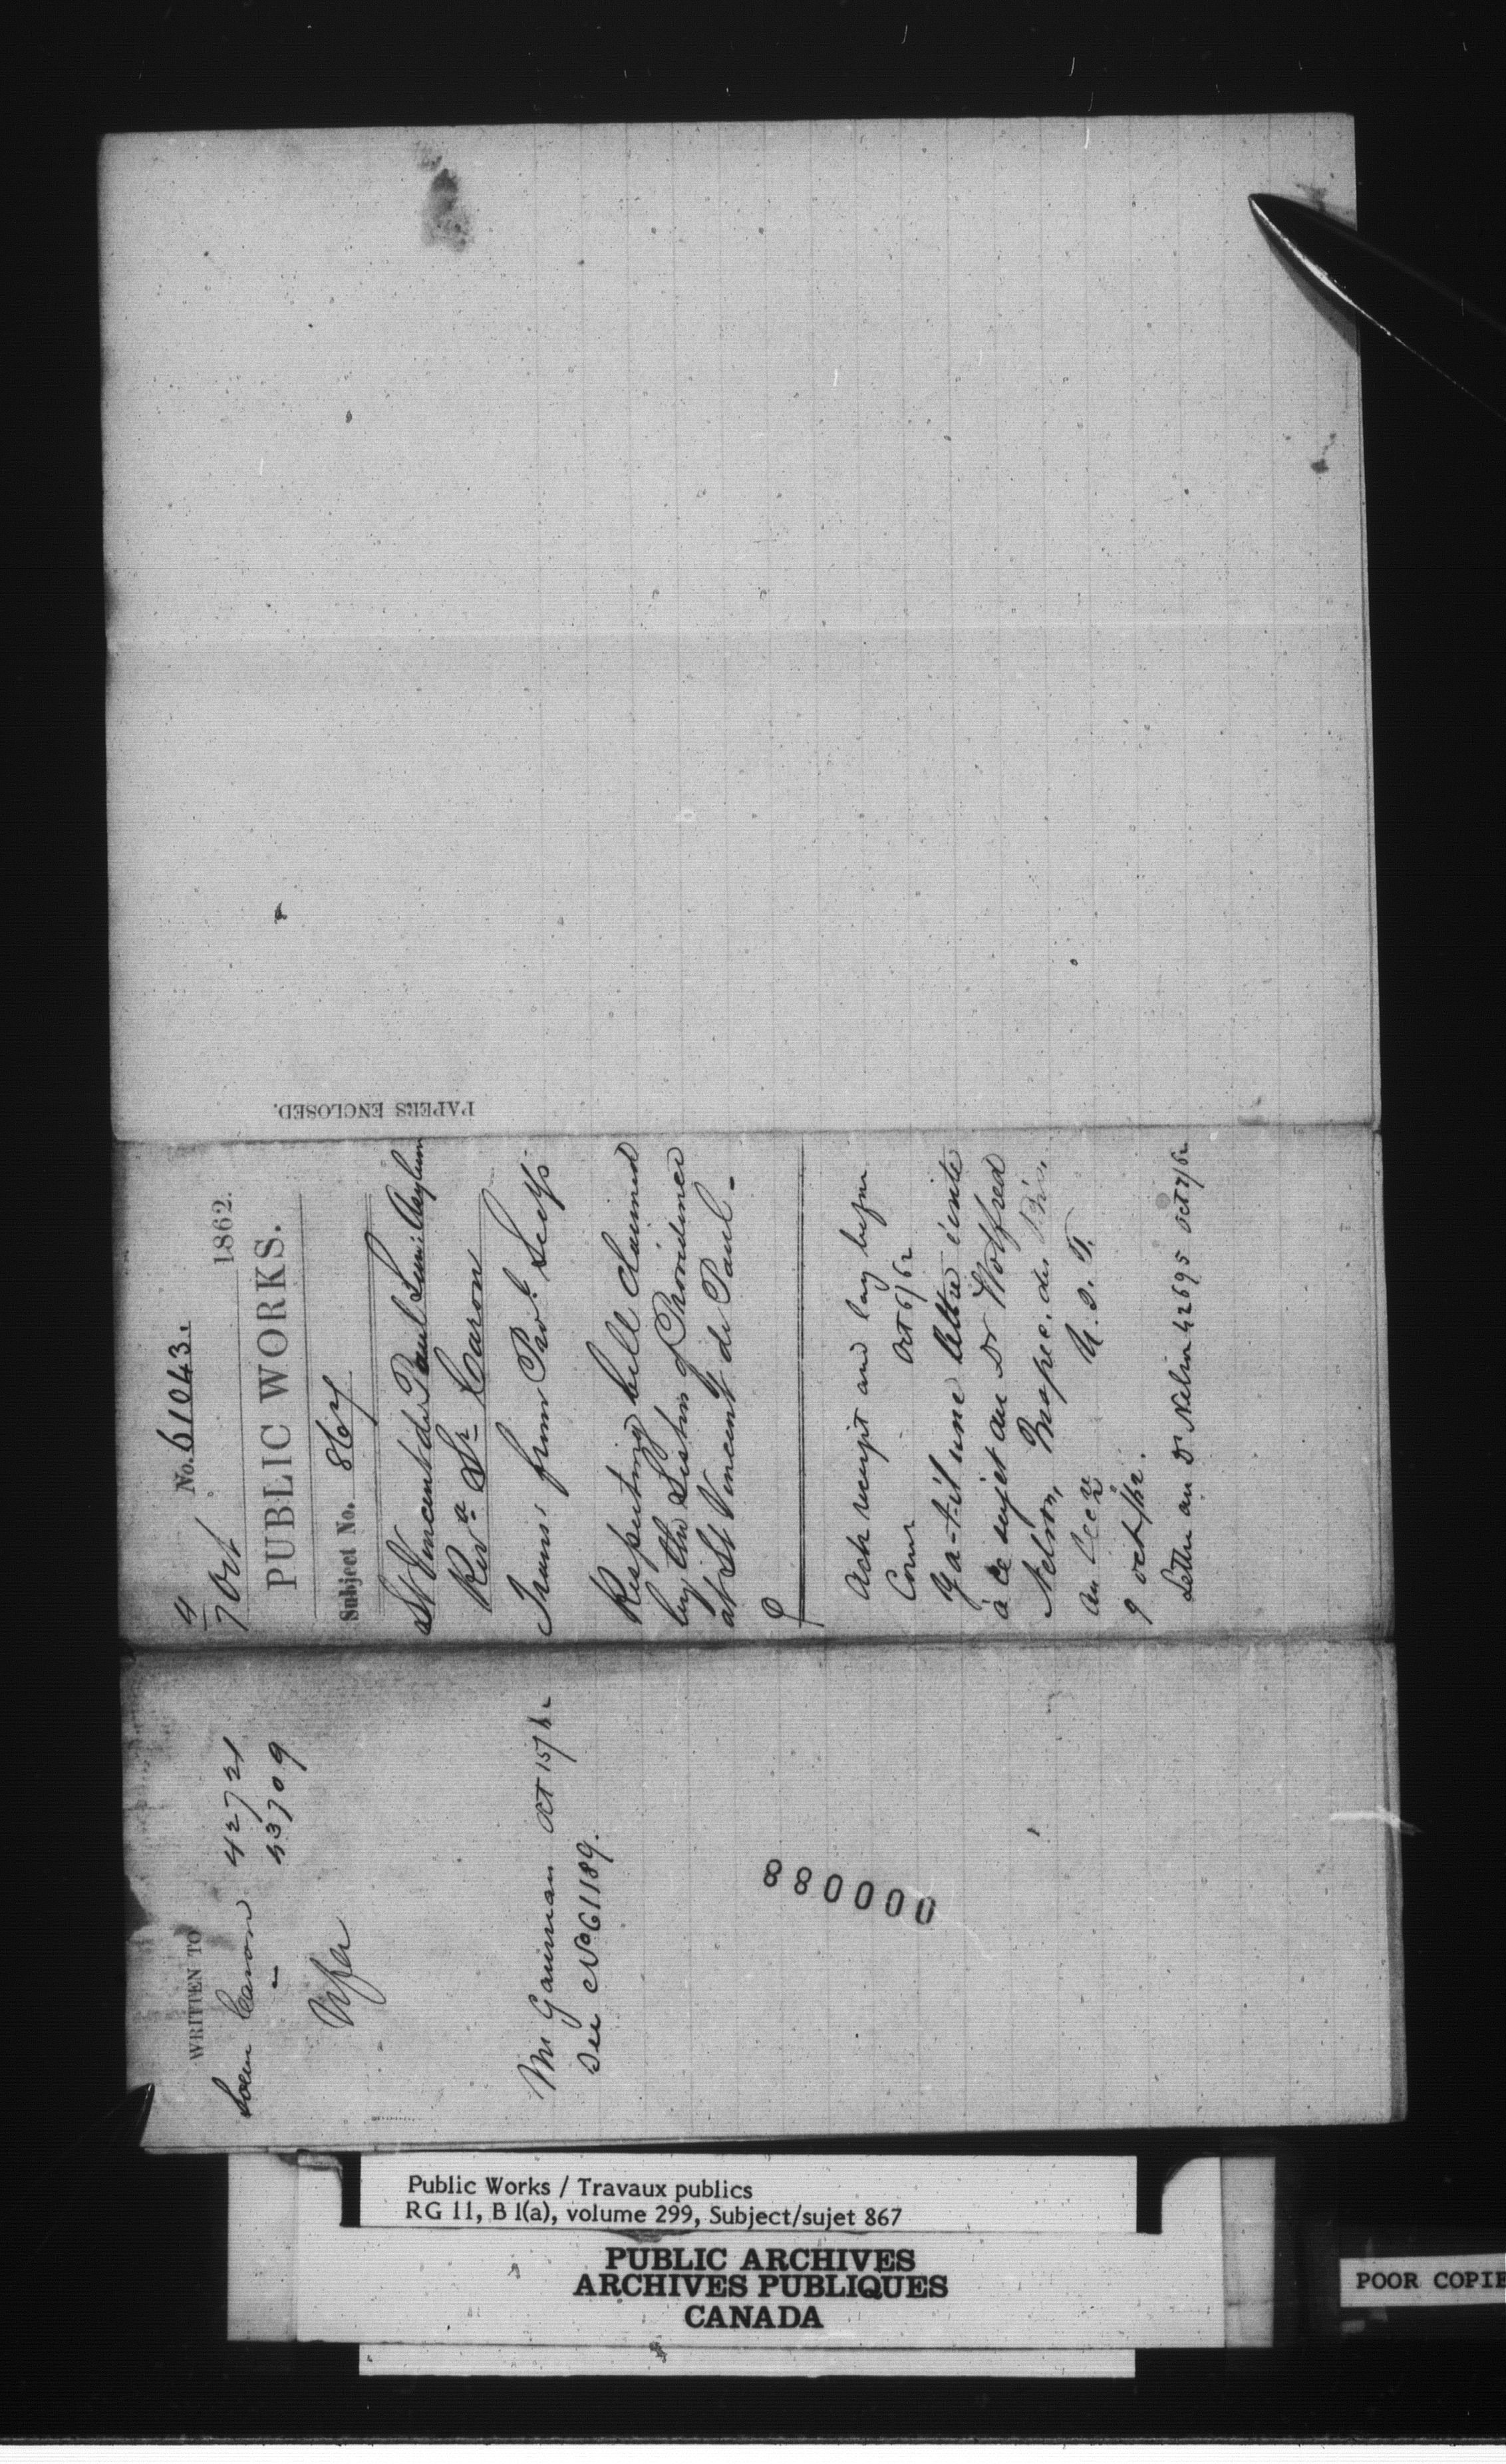 No. 61043.
4/7 Oct 1862.
PUBLIC WORKS.
Subject No. 867
St Vincent de Paul Asylum
Revd Sr Caron
Trans: from Prov.l Secy's
Respecting bell claimed
by the Sisters of Providence
at St Vincent de Paul.
Ack receipt and lay before
Comr Oct 6/62
Y a-t-il une lettre écrite
à ce sujet au Dr Wolfred
Nelson, Inspec. des
9 oct/62.
Lettre au Dr Nelson 42695 Oct 9/62
PAPERS ENCLOSED.
WRITTEN TO
Soeur Caron 42721
" 43709
Mr Gauvreau Oct 15/62
See No 61189.
880000
Public Works / Travaux publics
RG 11, B 1(a), volume 299, Subject/sujet 867
PUBLIC ARCHIVES
ARCHIVES PUBLIQUES
CANADA
POOR COPIE